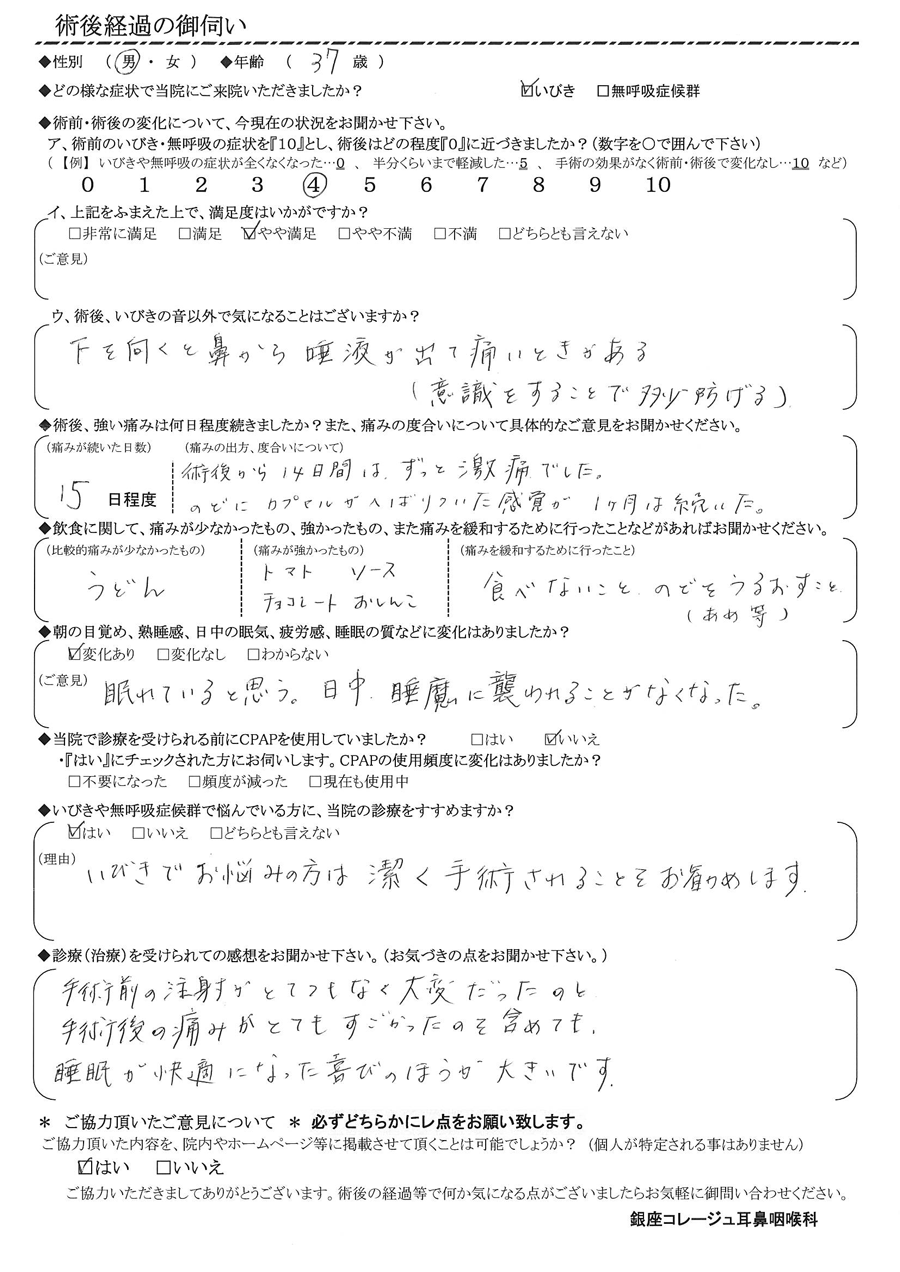 術後経過の御伺い
◆性別 （ 男 ・ 女 ） ◆年齢 （ 37 歳 ）
◆どの様な症状で当院にご来院いただきましたか？ ☑いびき □無呼吸症候群
◆術前・術後の変化について、今現在の状況をお聞かせ下さい。
ア、術前のいびき・無呼吸の症状を『10』とし、術後はどの程度『0』に近づきましたか？（数字を○で囲んで下さい）
（ 【例】 いびきや無呼吸の症状が全くなくなった…0 、 半分くらいまで軽減した…5 、 手術の効果がなく術前・術後で変化なし…10 など）
0 1 2 3 ④ 5 6 7 8 9 10
イ、上記をふまえた上で、満足度はいかがですか？
□非常に満足 □満足 ☑やや満足 □やや不満 □不満 □どちらとも言えない
（ご意見）
ウ、術後、いびきの音以外で気になることはございますか？
下を向くと鼻から唾液が出て痛いときがある
（意識をすることで多少防げる）
◆術後、強い痛みは何日程度続きましたか？また、痛みの度合いについて具体的なご意見をお聞かせください。
（痛みが続いた日数） （痛みの出方、度合いについて）
術後から14日間は、ずっと激痛でした。
15 日程度
のどにカプセルがへばりついた感覚が1ヶ月は続いた。
◆飲食に関して、痛みが少なかったもの、強かったもの、また痛みを緩和するために行ったことなどがあればお聞かせください。
（比較的痛みが少なかったもの） （痛みが強かったもの） （痛みを緩和するために行ったこと）
うどん
トマト ソース
チョコレート おしんこ
食べないこと、のどをうるおすこと、
（あめ等）
◆朝の目覚め、熟睡感、日中の眠気、疲労感、睡眠の質などに変化はありましたか？
☑変化あり □変化なし □わからない
（ご意見） 眠れていると思う。日中、睡魔に襲われることがなくなった。
◆当院で診療を受けられる前にCPAPを使用していましたか？ □はい ☑いいえ
・『はい』にチェックされた方にお伺いします。CPAPの使用頻度に変化はありましたか？
□不要になった □頻度が減った □現在も使用中
◆いびきや無呼吸症候群で悩んでいる方に、当院の診療をすすめますか？
☑はい □いいえ □どちらとも言えない
（理由） いびきでお悩みの方は潔く手術されることをお勧めします。
◆診療（治療）を受けられての感想をお聞かせ下さい。（お気づきの点をお聞かせ下さい。）
手術前の注射がとてつもなく大変だったのと
手術後の痛みがとてもすごかったのを含めても、
睡眠が快適になった喜びのほうが大きいです。
＊ ご協力頂いたご意見について ＊ 必ずどちらかにレ点をお願い致します。
ご協力頂いた内容を、院内やホームページ等に掲載させて頂くことは可能でしょうか？ （個人が特定される事はありません）
☑はい □いいえ
ご協力いただきましてありがとうございます。術後の経過等で何か気になる点がございましたらお気軽に御問い合わせください。
銀座コレージュ耳鼻咽喉科